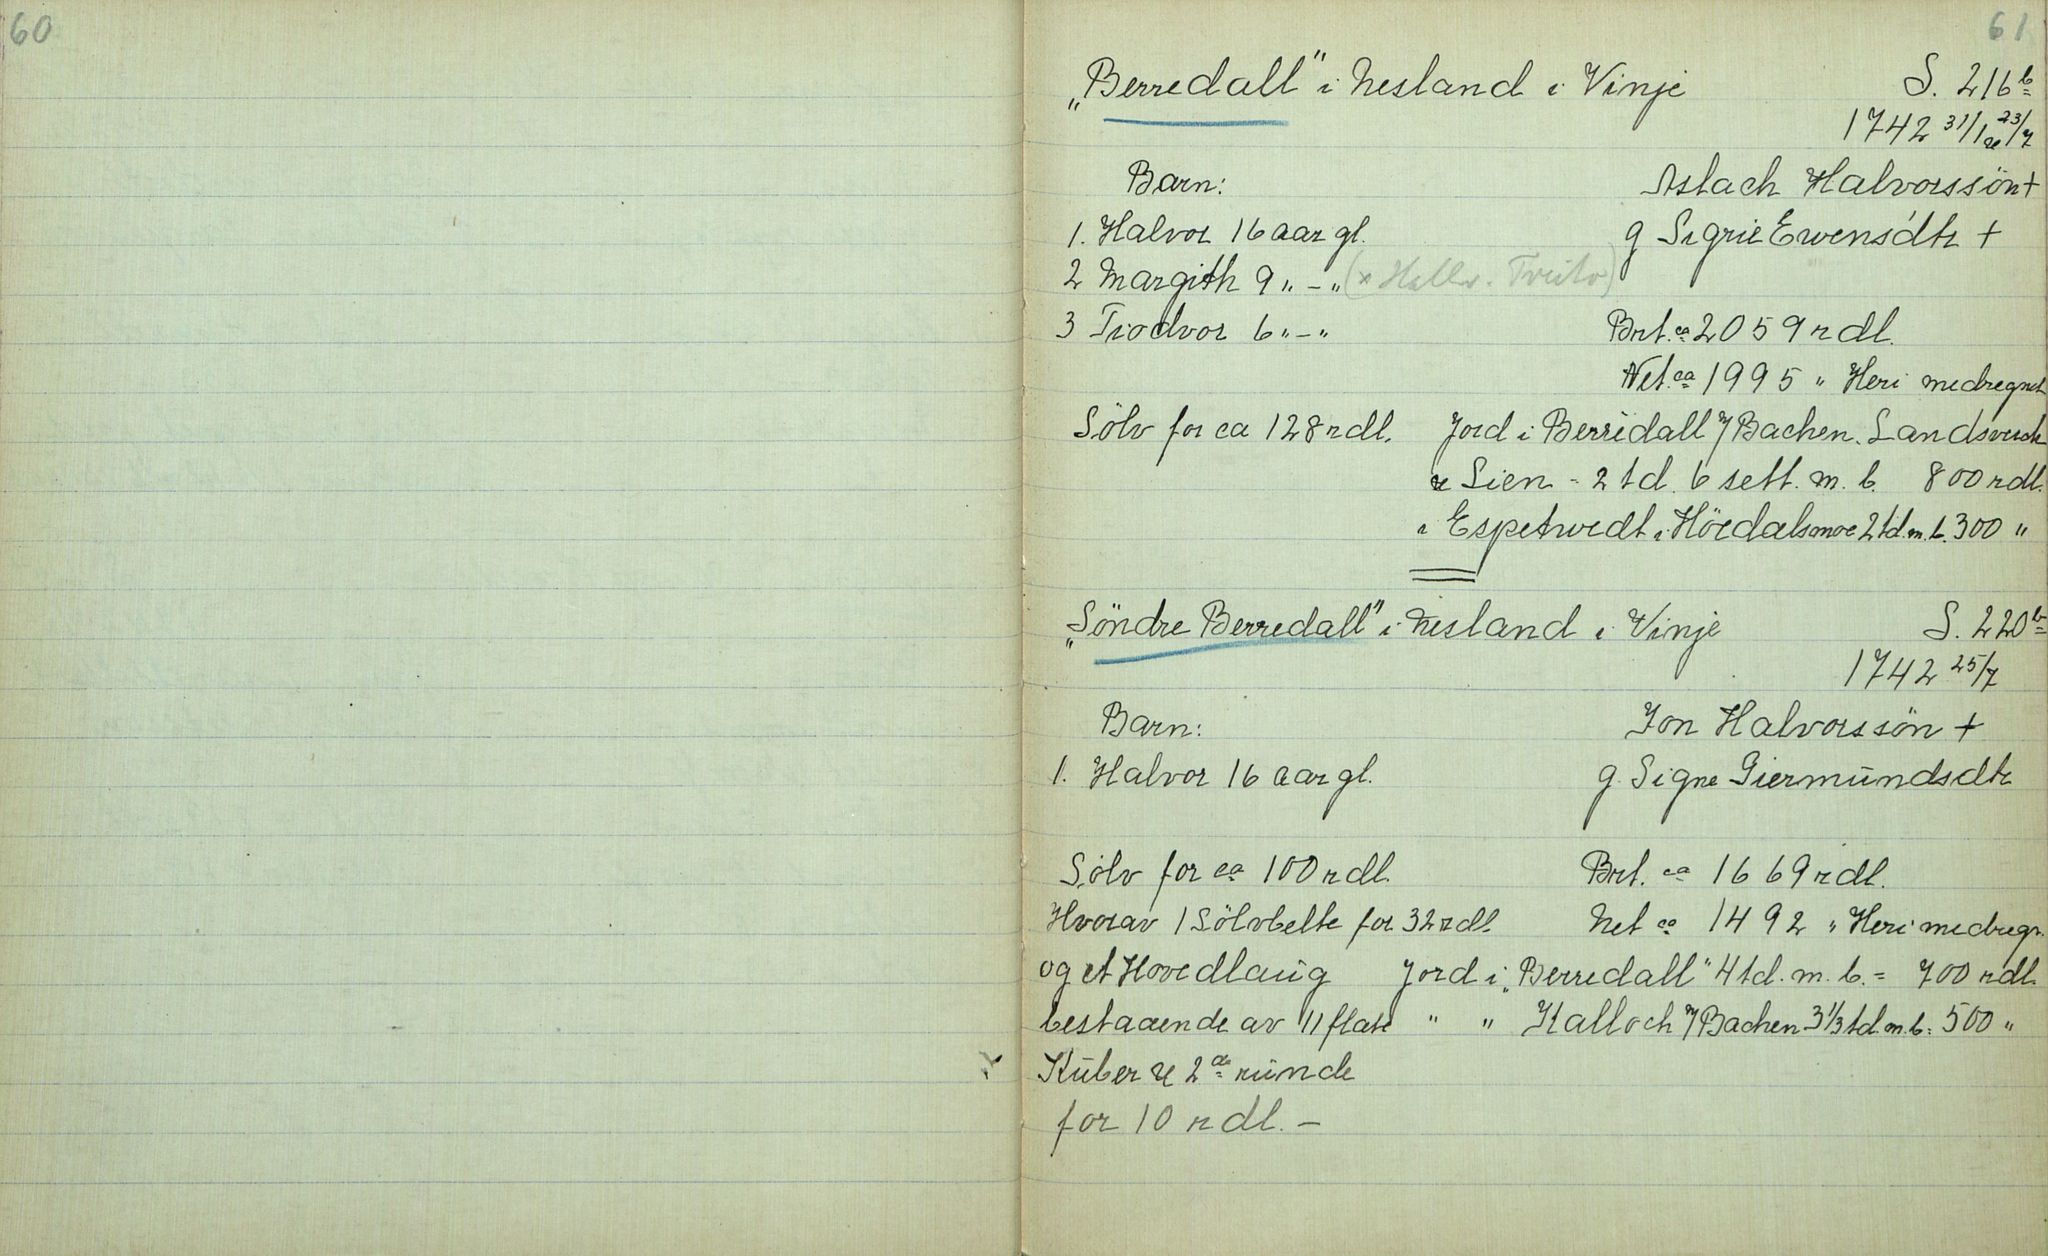 60
61
„Berredall" i Nesland i Vinje S. 216b
1742 31/1 & 23/7
Barn: Aslach Halvorssön +
1. Halvor 16 aar gl. g Sigrie Ewensdtr +
2 Margith 9 „ - „ (x Hallv.
3 Tiodvor 6 „ - „ Brt. ca 2059 rdl.
Net. ca 1995 „ Heri medregnet
Sölv for ca 128 rdl. Jord i Berredall / Bachen. Landsverck
& Lien = 2 td. 6 sett. m. b. 800 rdl.
i Espetvedt i Höidalsmoe 2 td. m. b. 300 „
„Söndre Berredall" i Nesland i Vinje S. 220b
1742 25/7
Barn: Jon Halvorssön +
1. Halvor 16 aar gl. g. Signe Giermŭndsdtr
Sölv for ca 100 rdl. Brt. ca 1669 rdl.
Hvorav 1 Sölvbelte for 32 rdl Net ca 1492 „ Heri medregn.
og et Hovedlaŭg Jord i „Berredall" 4 td. m. b. = 700 rdl.
bestaaende av 11 flate " " Kalloch / Bachen 3 1/3 td. m. b. = 500 „
Kŭber & 2de rŭnde
for 10 rdl. -